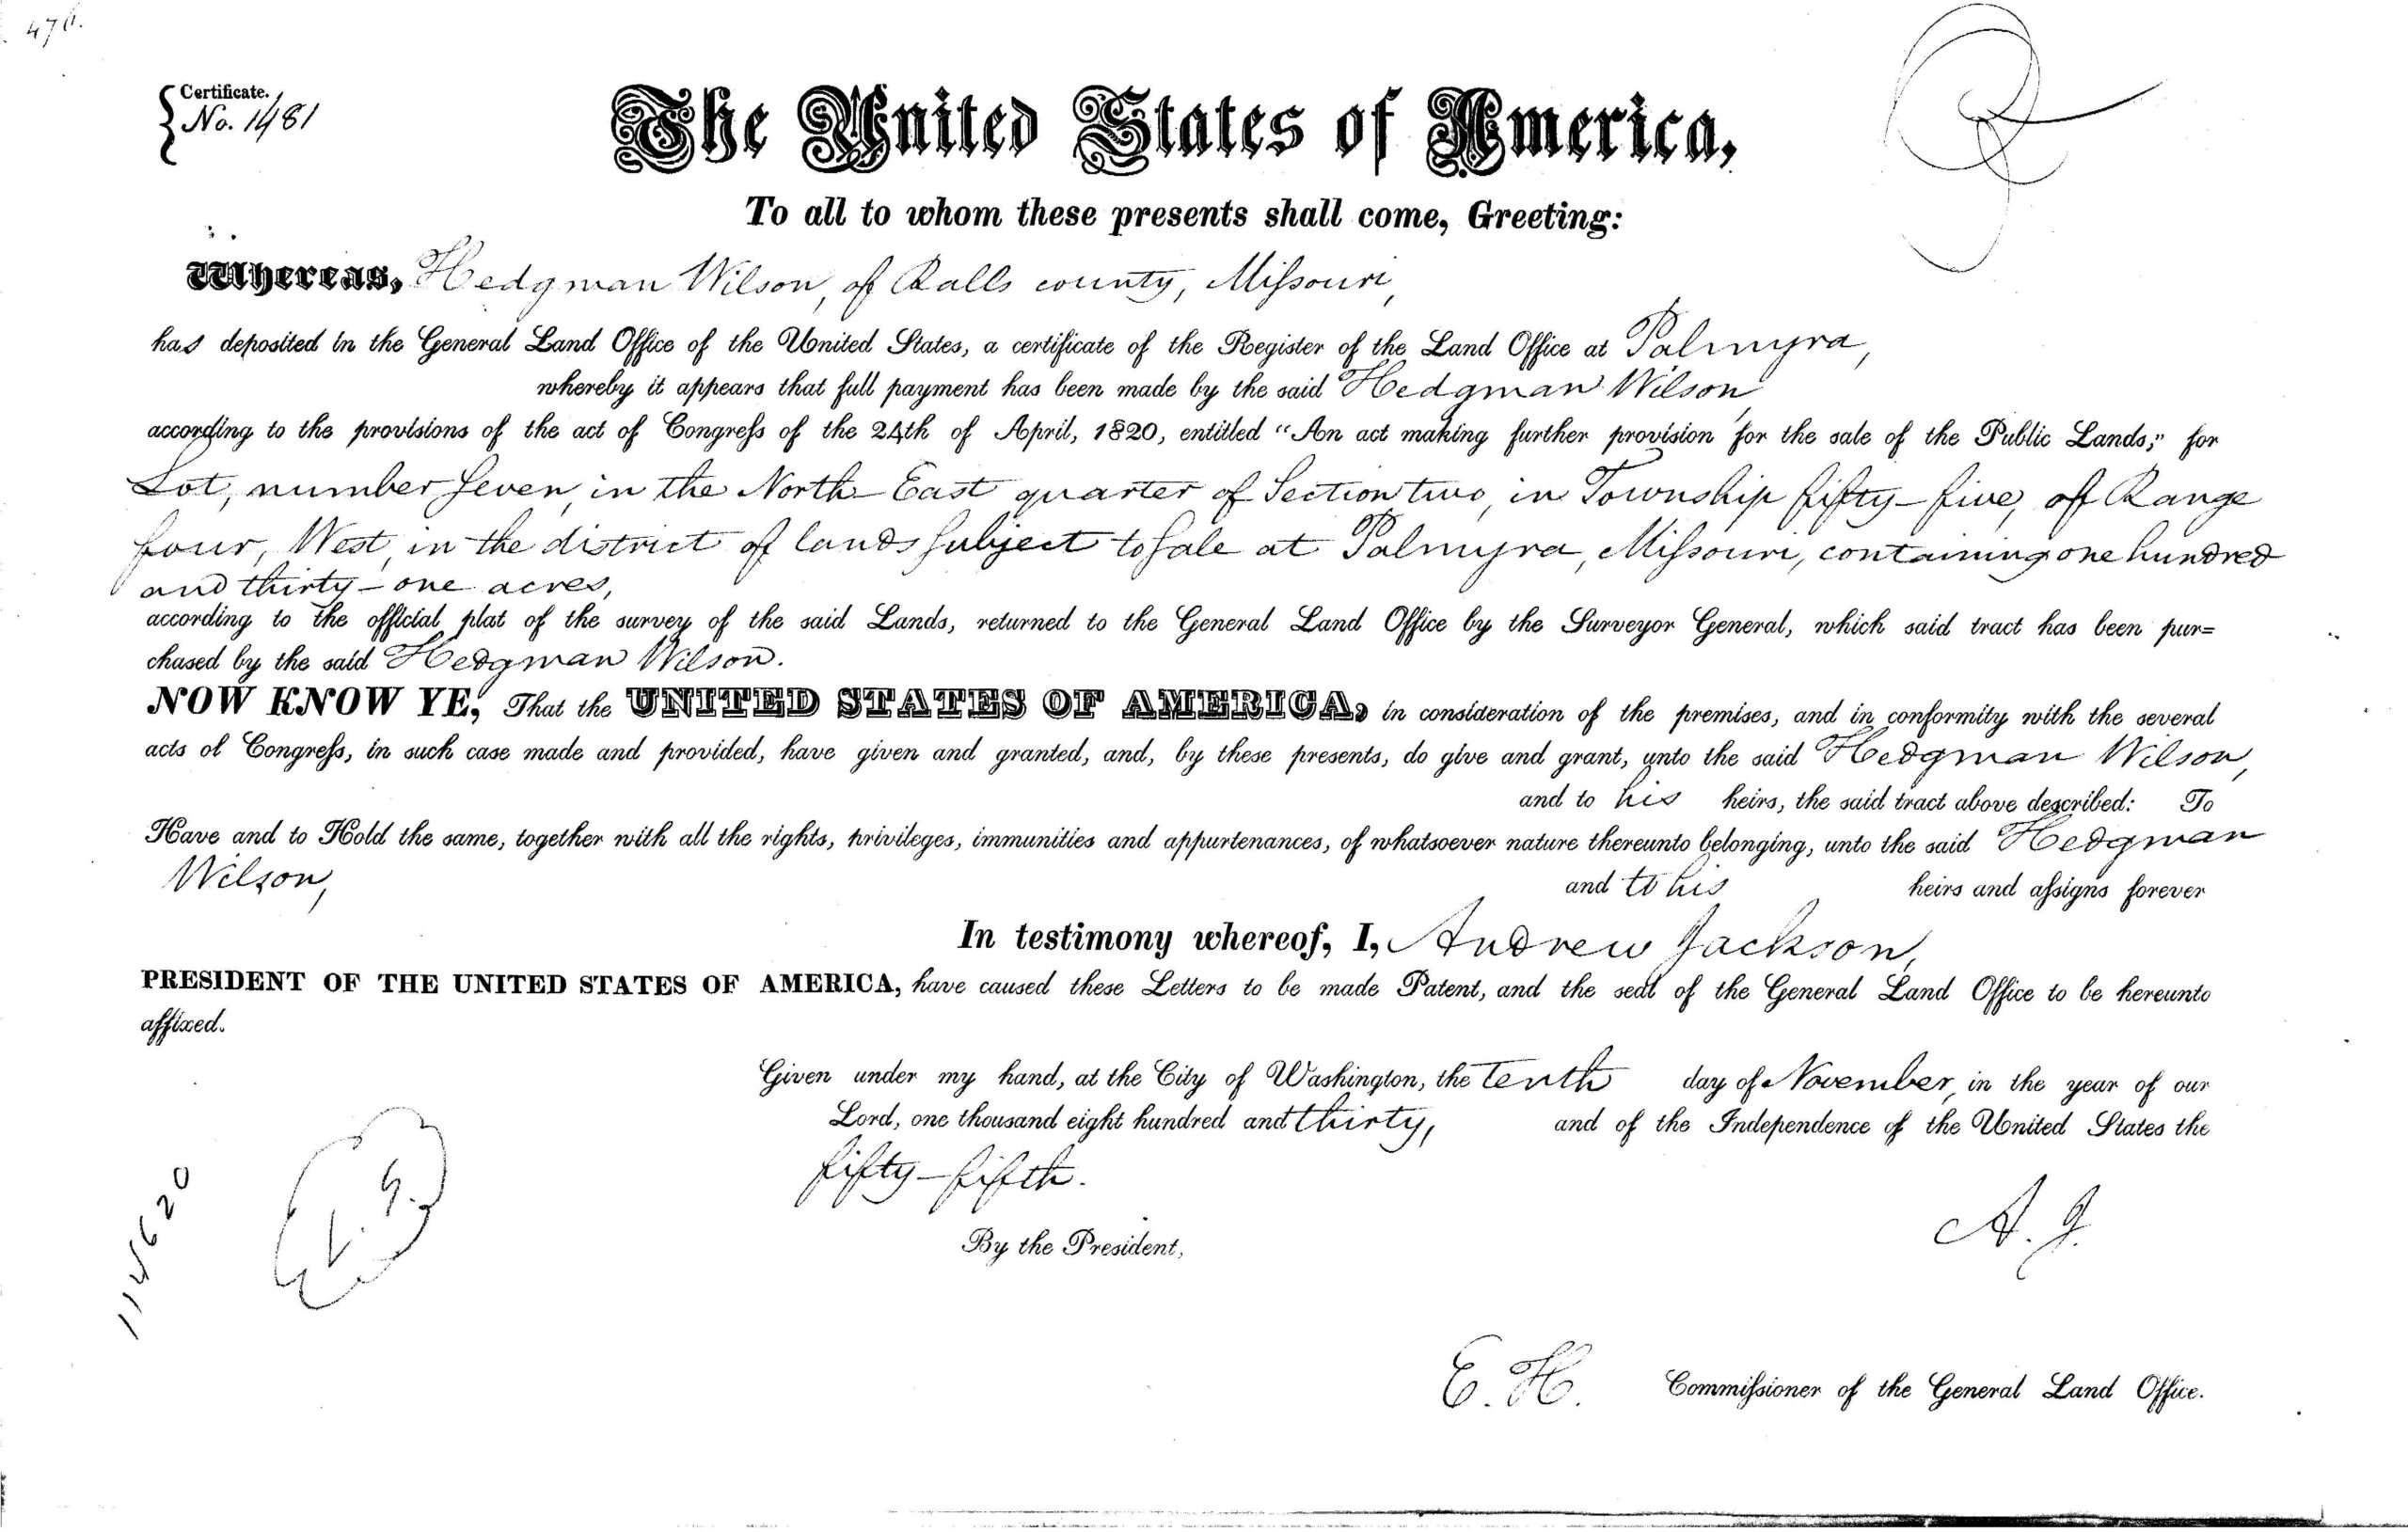 476.
Certificate.
No. 1481
The United States of America,
To all to whom these presents shall come, Greeting:
Whereas, Hedgman Wilson, of Ralls county, Missouri,
has deposited in the General Land Office of the United States, a certificate of the Register of the Land Office at Palmyra,
whereby it appears that full payment has been made by the said Hedgman Wilson
according to the provisions of the act of Congress of the 24th of April, 1820, entitled "An act making further provision for the sale of the Public Lands;" for
Lot, number Seven, in the North East quarter of Section two, in Township fifty-five, of Range
four, West, in the district of lands subject to sale at Palmyra, Missouri, containing one hundred
and thirty-one acres,
according to the official plat of the survey of the said Lands, returned to the General Land Office by the Surveyor General, which said tract has been pur=
chased by the said Hedgman Wilson.
NOW KNOW YE, That the UNITED STATES OF AMERICA, in consideration of the premises, and in conformity with the several
acts of Congress, in such case made and provided, have given and granted, and, by these presents, do give and grant, unto the said Hedgman Wilson,
and to his heirs, the said tract above described: To
Have and to Hold the same, together with all the rights, privileges, immunities and appurtenances, of whatsoever nature thereunto belonging, unto the said Hedgman
Wilson, and to his heirs and assigns forever
In testimony whereof, I, Andrew Jackson,
PRESIDENT OF THE UNITED STATES OF AMERICA, have caused these Letters to be made Patent, and the seal of the General Land Office to be hereunto
affixed.
Given under my hand, at the City of Washington, the tenth day of November, in the year of our
Lord, one thousand eight hundred and thirty, and of the Independence of the United States the
fifty-fifth.
By the President,
A. J.
E. H. Commissioner of the General Land Office.